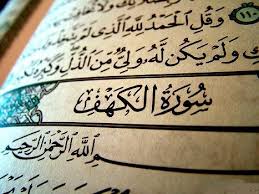 ١١٠ وَقُلِ الْحَمْدُ لِلَّهِ الَّذِي لَمْ
وَلَمْ يَكُن لَّهُ وَلِيٌّ مِّنَ الذُّلِّ وَكَبِّرْهُ
سُورَةُ الْكَهْفِ
بِسْمِ اللَّهِ الرَّحْمَٰنِ الرَّحِيمِ